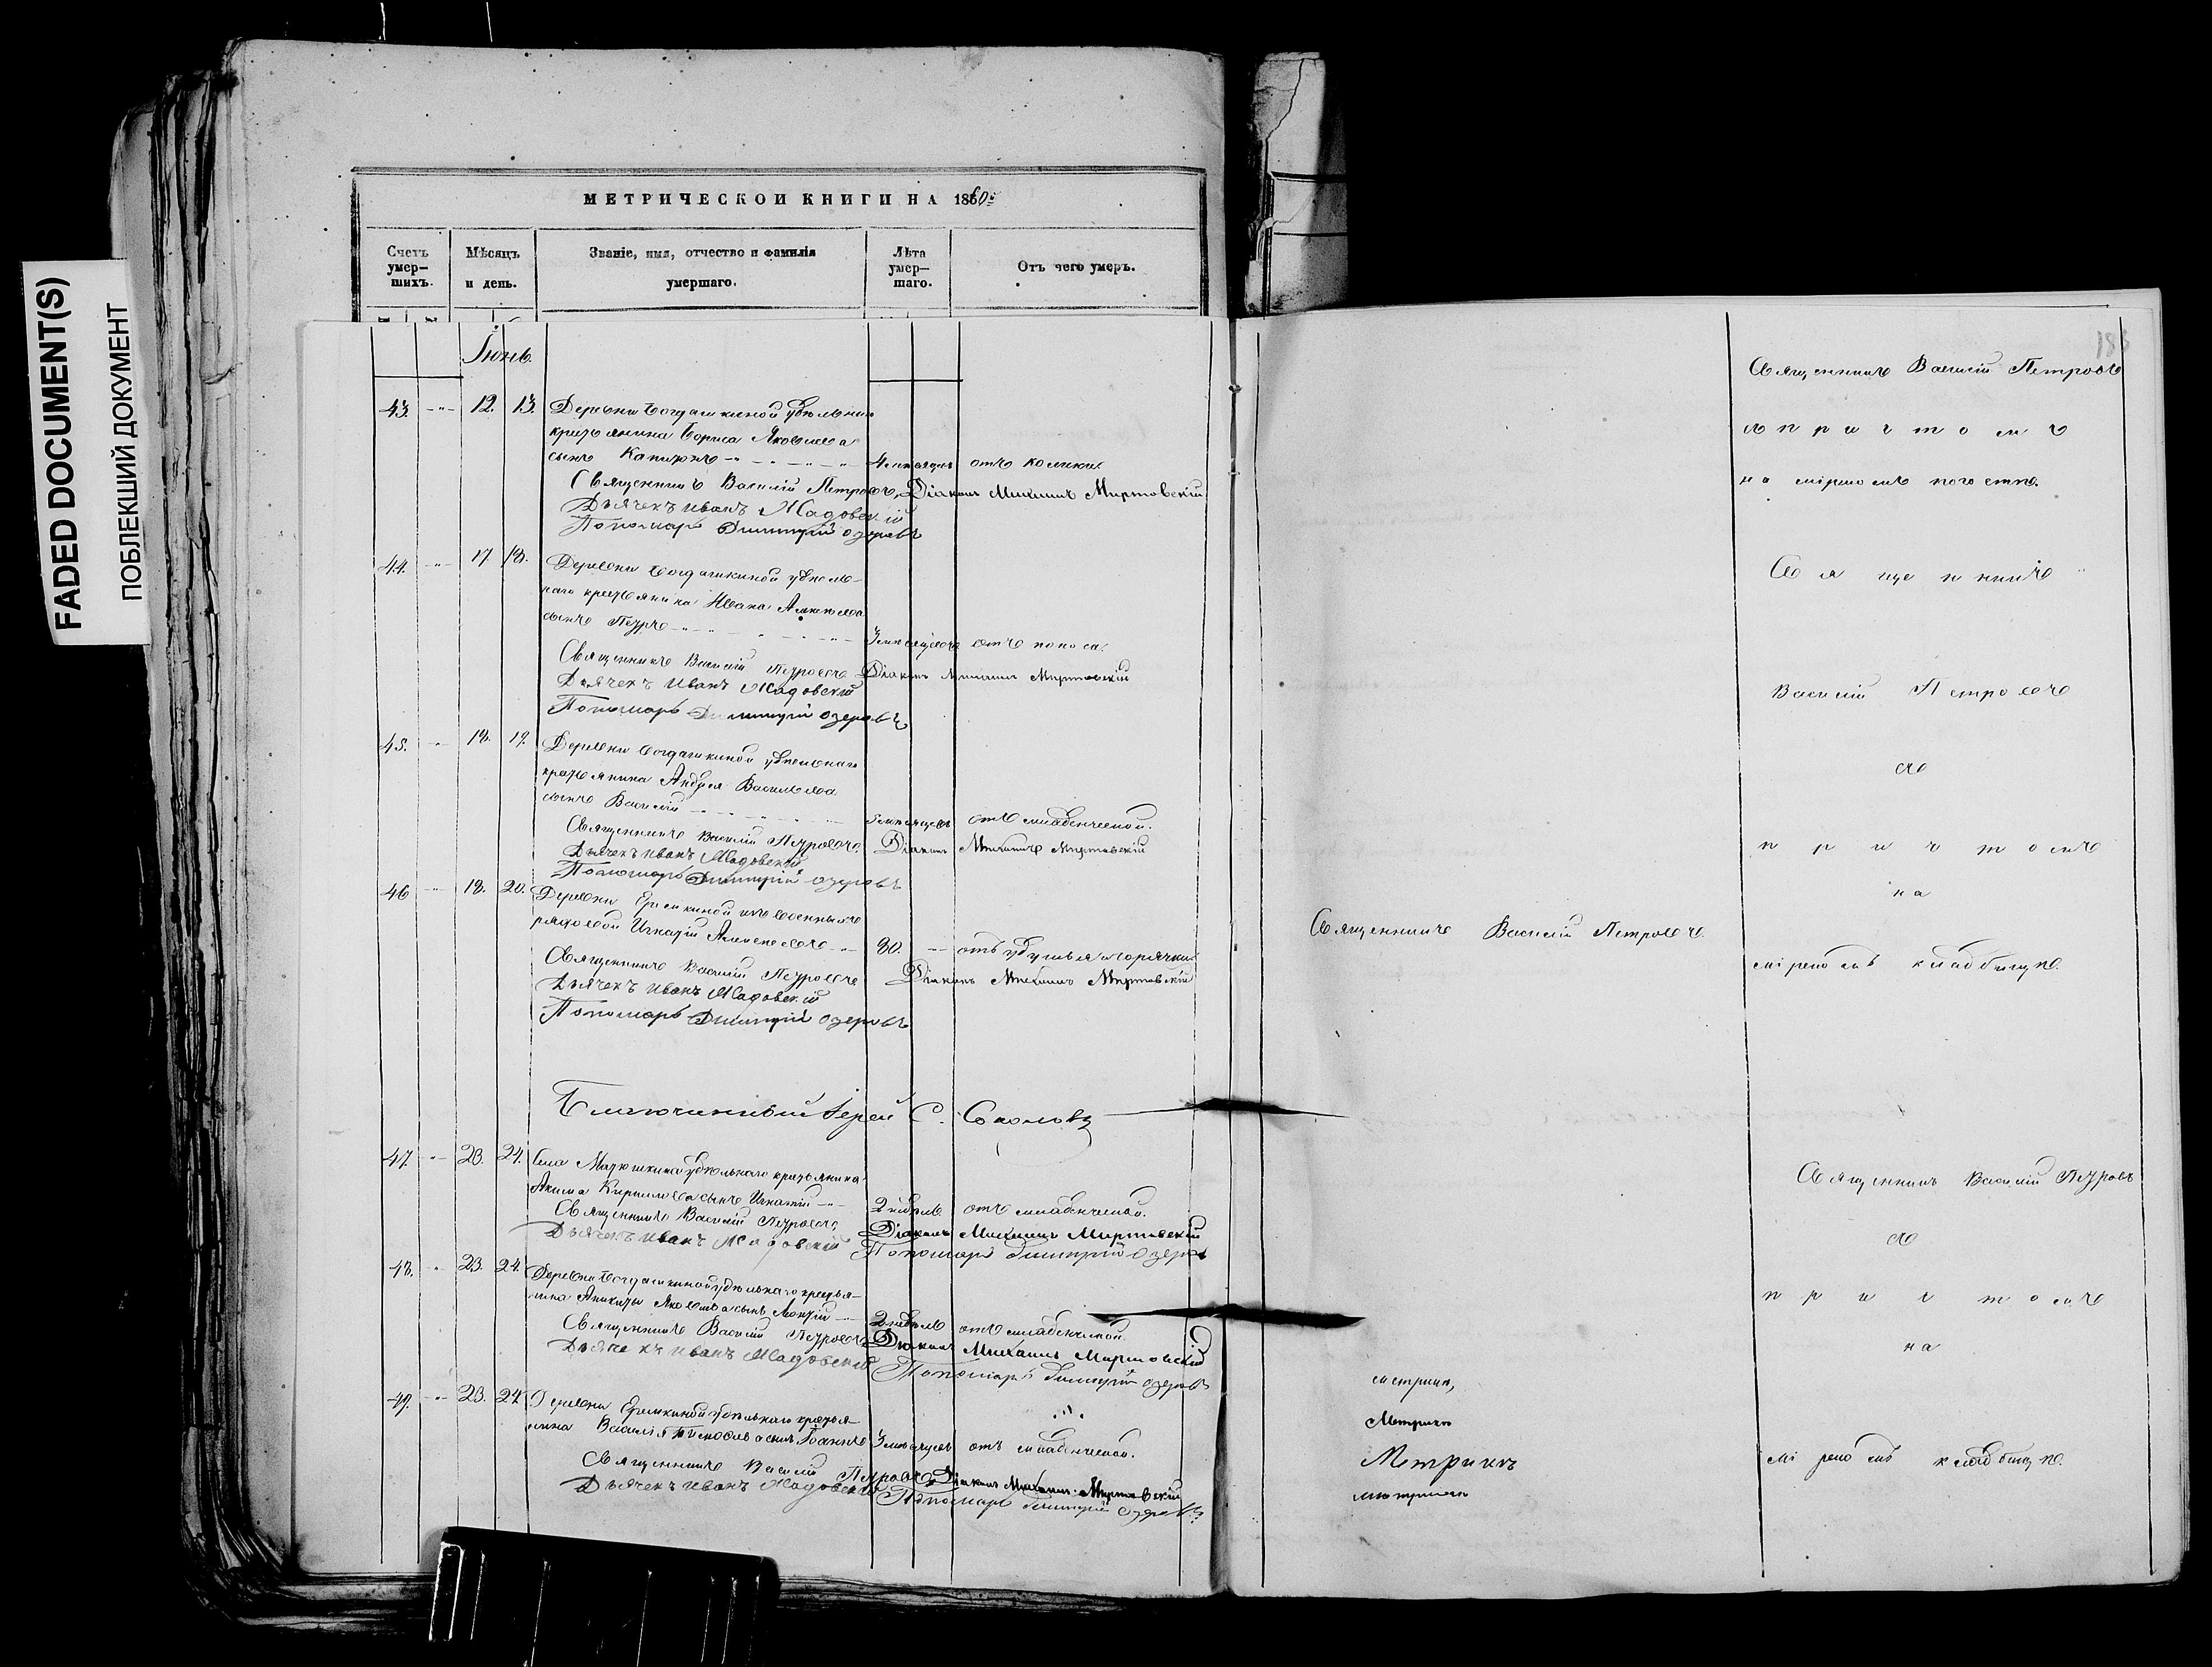 FADED DOCUMENT(S)
ПОБЛЕКШИЙ ДОКУМЕНТ
МЕТРИЧЕСКОЙ КНИГИ НА 1860:
Счетъ умер-шихъ.
Мѣсяцъ и день.
Званіе, имя, отчество и фамилія умершаго.
Лѣта умер-шаго.
Отъ чего умеръ.
Іюнь.
43. " 12. 13. Деревни Богдашкиной удѣльнаго
крестьянина Бориса Яковлева
сынъ Капитонъ 4 мѣсяцевъ отъ колики.
Священникъ Василій Петровъ, Діаконъ Михаилъ Миртовскій
Дьячекъ Иванъ Жадовскій
Пономарь Димитрій Озеровъ
44. " 17 18. Деревни Богдашкиной удѣль-
наго крестьянина Ивана Алексѣева
сынъ Петръ 3 мѣсяцевъ отъ поноса.
Священникъ Василій Петровъ Діаконъ Михаилъ Миртовскій
Дьячекъ Иванъ Жадовскій
Пономарь Димитрій Озеровъ
45. " 18. 19. Деревни Богдашкиной удѣльнаго
крестьянина Андрея Васильева
сынъ Василій 5 мѣсяцевъ отъ младенческой.
Священникъ Василій Петровъ. Діаконъ Михаилъ Миртовскій
Дьячекъ Иванъ Жадовскій
Пономарь Димитрій Озеровъ
46 " 18. 20. Деревни Еремкиной изъ военныхъ
рядовой Игнатій Алексѣевъ 80. отъ удушья и горячки.
Священникъ Василій Петровъ Діаконъ Михаилъ Миртовскій
Дьячекъ Иванъ Жадовскій
Пономарь Димитрій Озеровъ
Благочинный Іерей С. Соколовъ
47. " 23. 24. Села Матюшкина удѣльнаго крестьянина
Акима Кириллова сынъ Игнатій 2 недѣль отъ младенческой.
Священникъ Василій Петровъ. Діаконъ Михаилъ Миртовскій
Дьячекъ Иванъ Жадовскій Пономарь Димитрій Озеровъ
48. " 23. 24. Деревни Богдашкиной удѣльнаго крестья-
нина Никиты Яковлева сынъ 2 недѣль отъ младенческой.
Священникъ Василій Петровъ Діаконъ Михаилъ Миртовскій
Дьячекъ Иванъ Жадовскій
Пономарь Димитрій Озеровъ
49. " 23. 24. Деревни Еремкиной удѣльнаго крестья-
нина Василія сынъ Іоаннъ 3 мѣсяцевъ отъ младенческой.
Священникъ Василій Петровъ Діаконъ Михаилъ Миртовскій
Дьячекъ Иванъ Жадовскій Пономарь Димитрій Озеровъ
181
Священникъ Василій Петровъ
съ причтомъ
на мірскомъ погостѣ.
Священникъ
Василій Петровъ
съ
причтомъ
на
Священникъ Василій Петровъ.
мірскомъ кладбищѣ.
Священникъ Василій Петровъ
съ
причтомъ
на
метрика,
Метрика
Метрикъ
мірскомъ кладбищѣ.